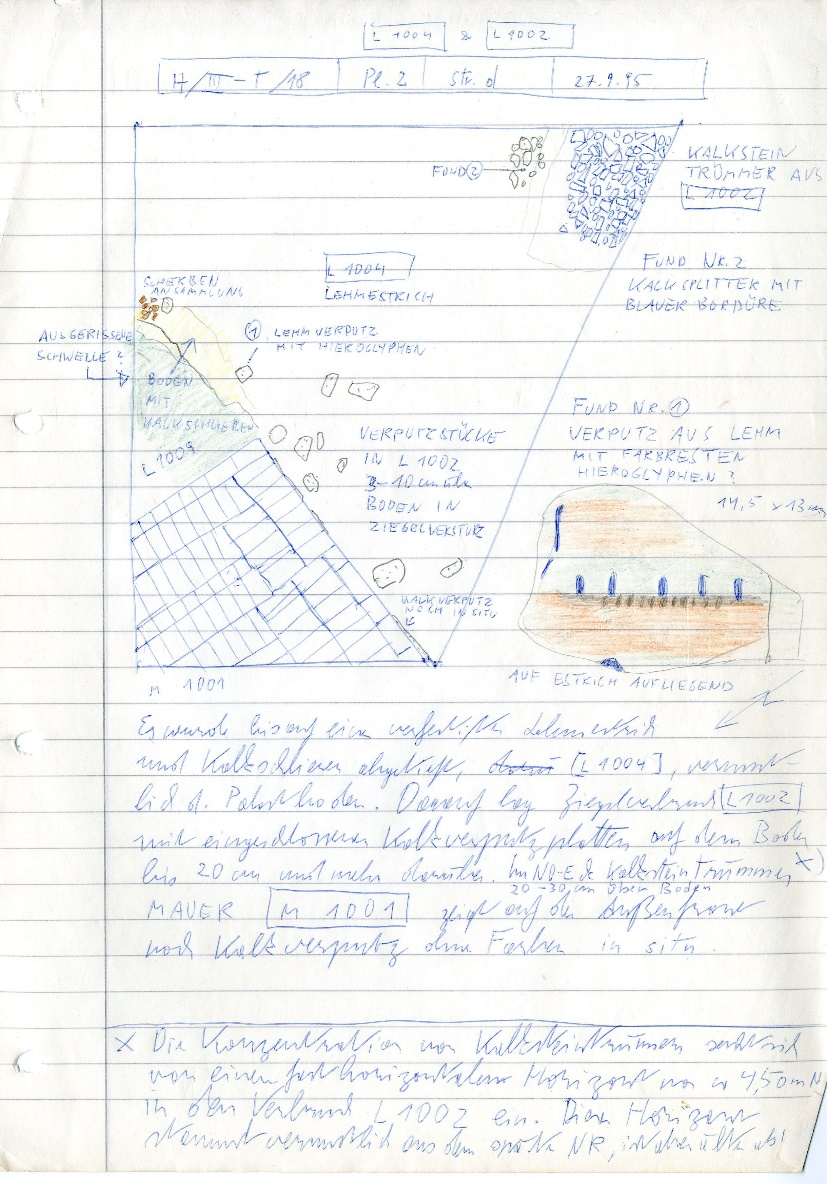 L 1004 & L 1002
H/III-T/18 Pl. 2 Str. d 27.9.95
FUND 2
KALKSTEIN
TRÜMMER AUS
L 1002
L 1004
LEHMESTRICH
SCHERBEN
ANSAMMLUNG
FUND NR. 2
KALKSPLITTER MIT
BLAUER BORDÜRE
AUSGERISSENE
SCHWELLE?
1 LEHMVERPUTZ
MIT HIEROGLYPHEN
BODEN
MIT
KALKSCHLIEREN
L 1009
VERPUTZSTÜCKE
IN L 1002
3-10 cm über
BODEN IN
ZIEGELVERSTURZ
FUND NR. 1
VERPUTZ AUS LEHM
MIT FARBRESTEN
HIEROGLYPHEN?
14,5 x 13 cm
KALKVERPUTZ
NOCH IN SITU
M 1001
AUF ESTRICH AUFLIEGEND
Es wurde bis auf einen verfestigten Lehmestrich
und Kalkschlieren abgetieft, [L 1004], vermut-
lich d. Palastboden. Darauf lag Ziegelverbund L 1002
mit eingeschlossenen Kalkverputzplatten auf dem Boden
bis 20 cm und mehr darüber. Im NO-E Kalksteintrümmer x)
20-30 cm über Boden
MAUER M 1001 zeigt auf der Außenfront
noch Kalkverputz ohne Farben in situ.
x Die Konzentration von Kalksteintrümmern senkt sich
von einem fast horizontalen Horizont von ca 4,50 m N
in den Verbund L 1002 ein. Dieser Horizont
stammt vermutlich aus dem späten NR, ist aber älter als